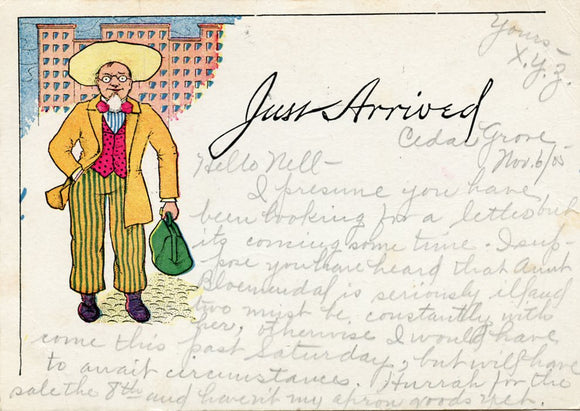 Yours-
X.Y.Z.
Just Arrived
Cedar Grove
Nov. 6/05
Hello Nell-
I presume you have
been looking for a letter but
its coming some time. I sup-
pose you have heard that Aunt
Bloemendal is seriously ill and
two must be constantly with
her, otherwise I would have
come this past Saturday, but will have
to await circumstances. Hurrah for the
sale the 8th and haven't my apron goods yet.